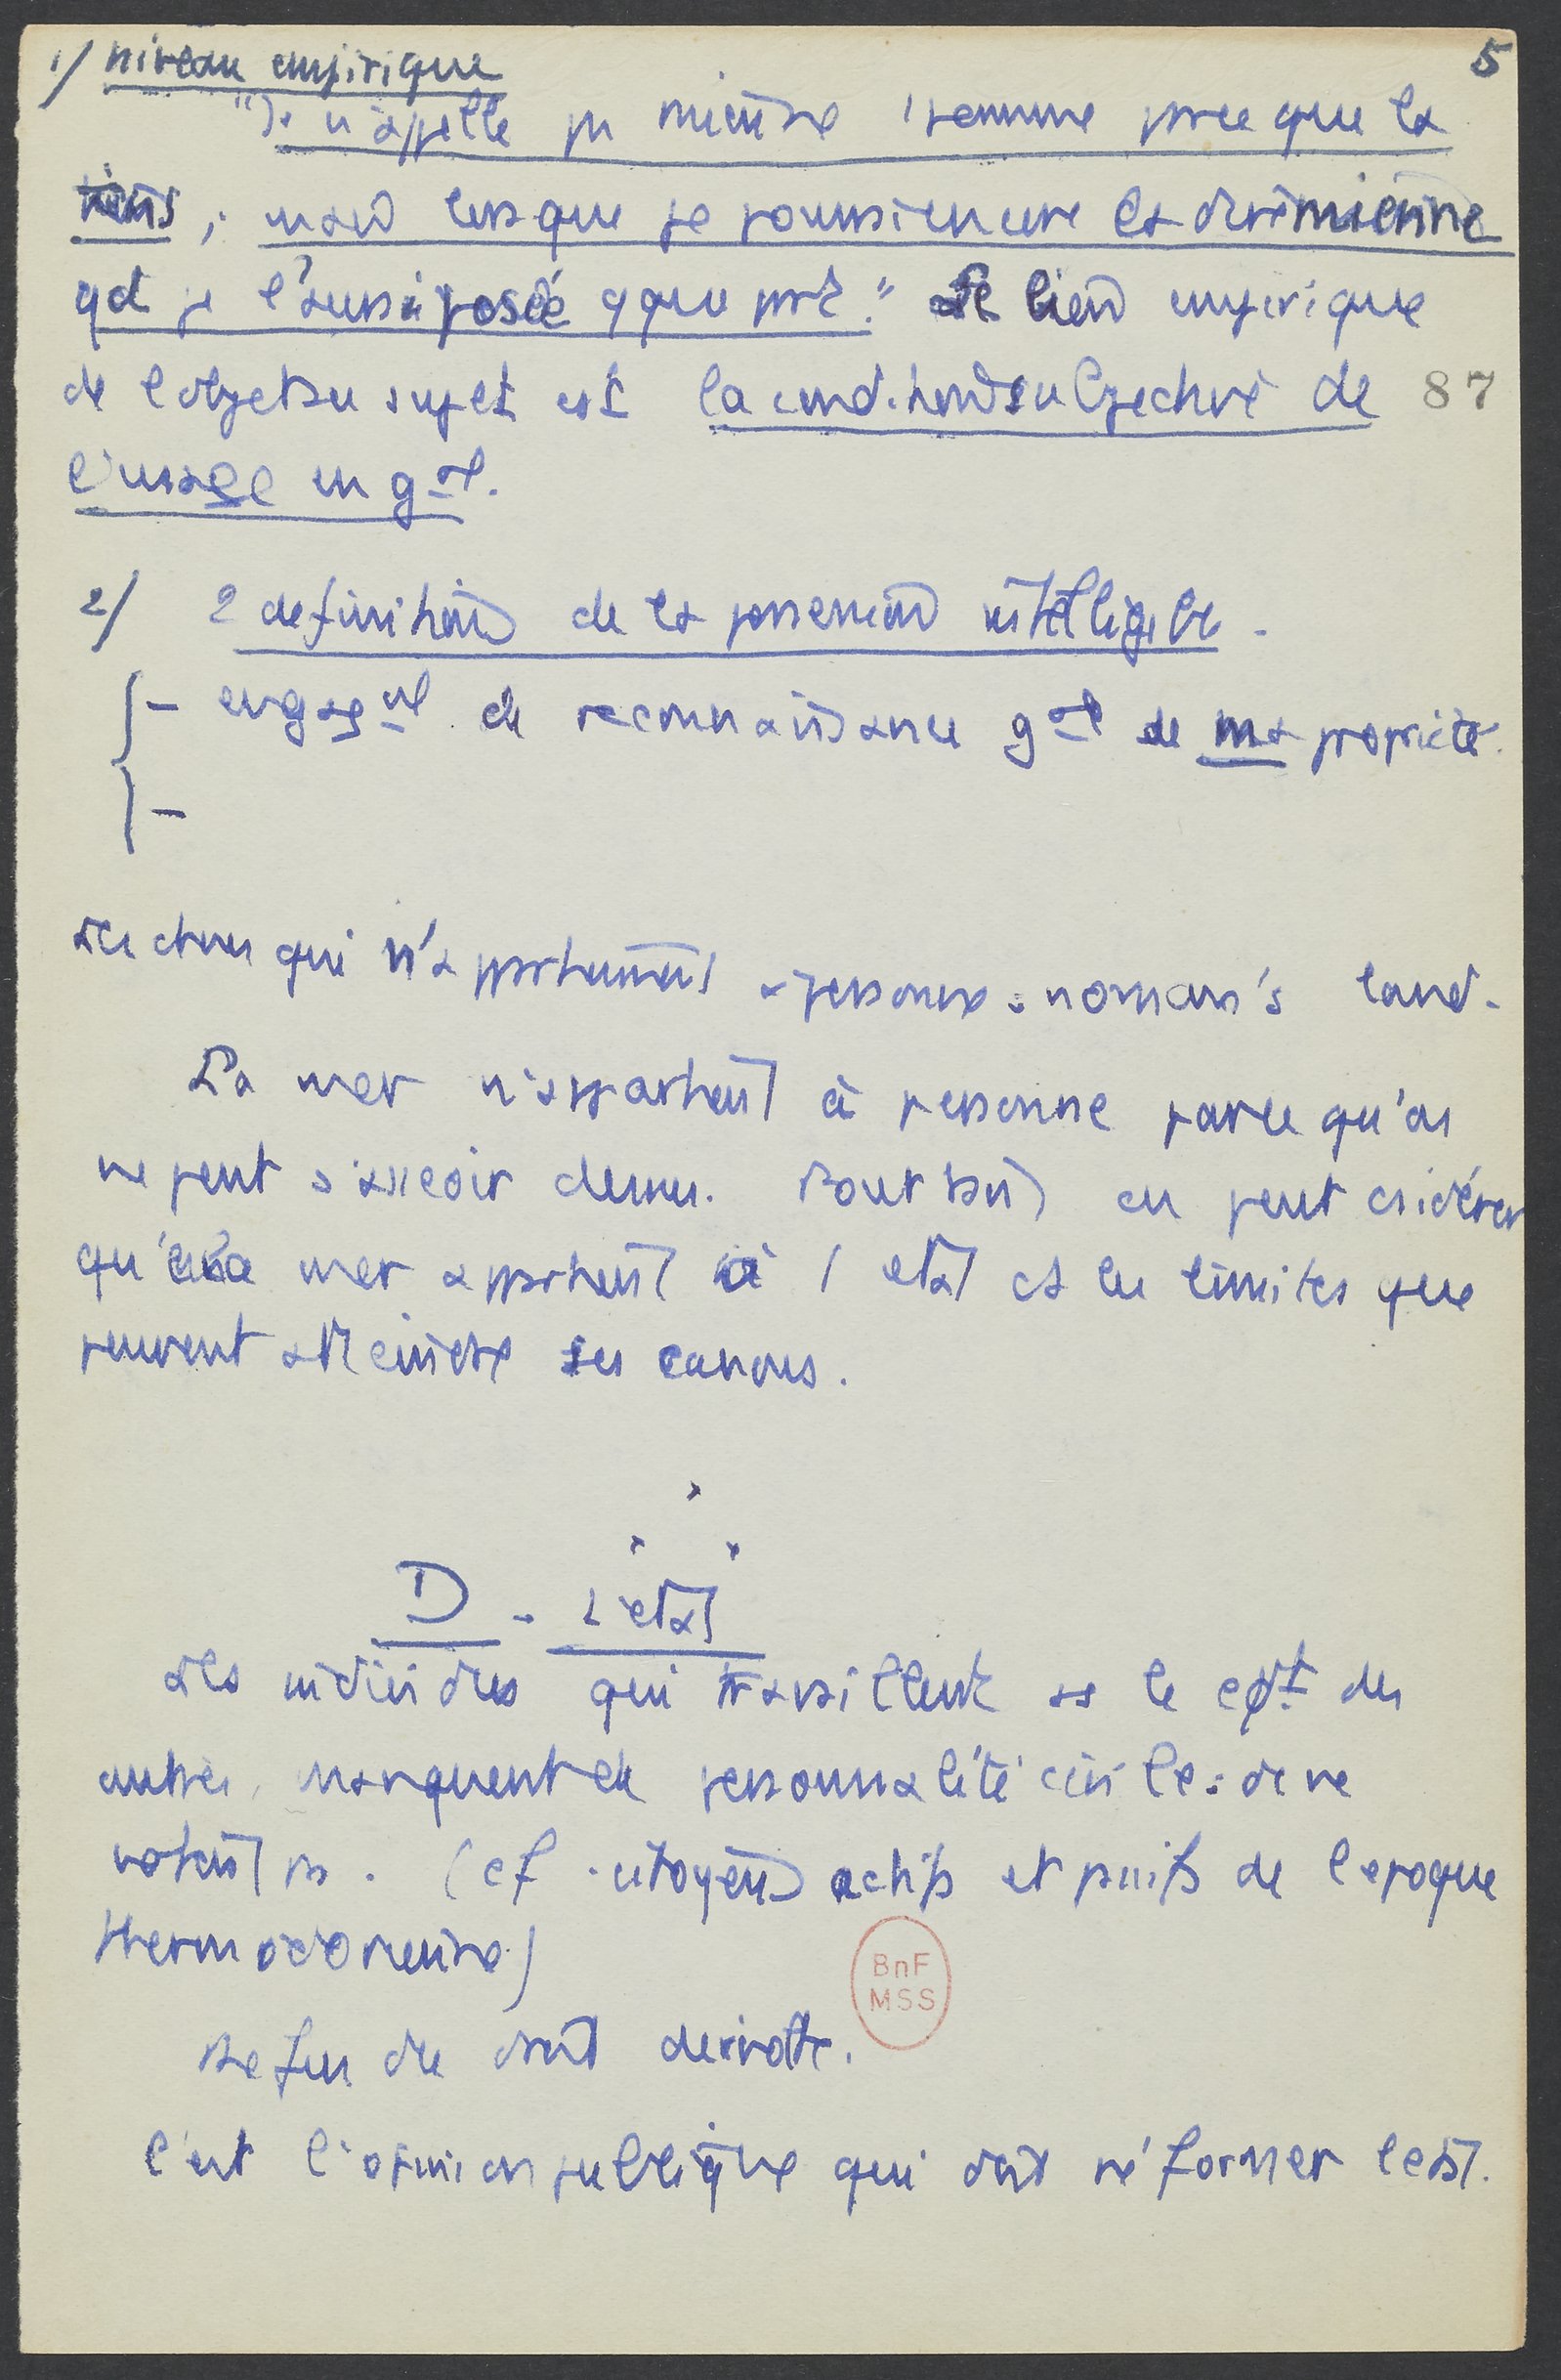 1/ niveau empirique
5
"Je n'appelle pas mienne 1 pomme parce que la
tiens, mais lorsque je pourrai encore la dire mienne
qd je l'aurai posée qque part." Le lien empirique
de l'objet au sujet est la condition subjective de
87
l'usage en gal.
2/ 2 définitions de la possession intelligible.
- engagt de reconnaissance gale de ma propriété.
-
Les choses qui n'appartiennent à personne : no man's land.
La mer n'appartient à personne parce qu'on
ne peut s'asseoir dessus. Pourtant on peut csidérer
qu'une mer appartient à 1 etat ds les limites que
peuvent atteindre ses canons.
D - L'etat
Les individus qui travaillent ss le cdt des
autres, manquent de personnalité civile : ils ne
votent pas. (cf. citoyens actifs et passifs de l'epoque
thermidorienne)
Refus du droit de revolte.
C'est l'opinion publique qui doit réformer l'etat.
BnF
MSS